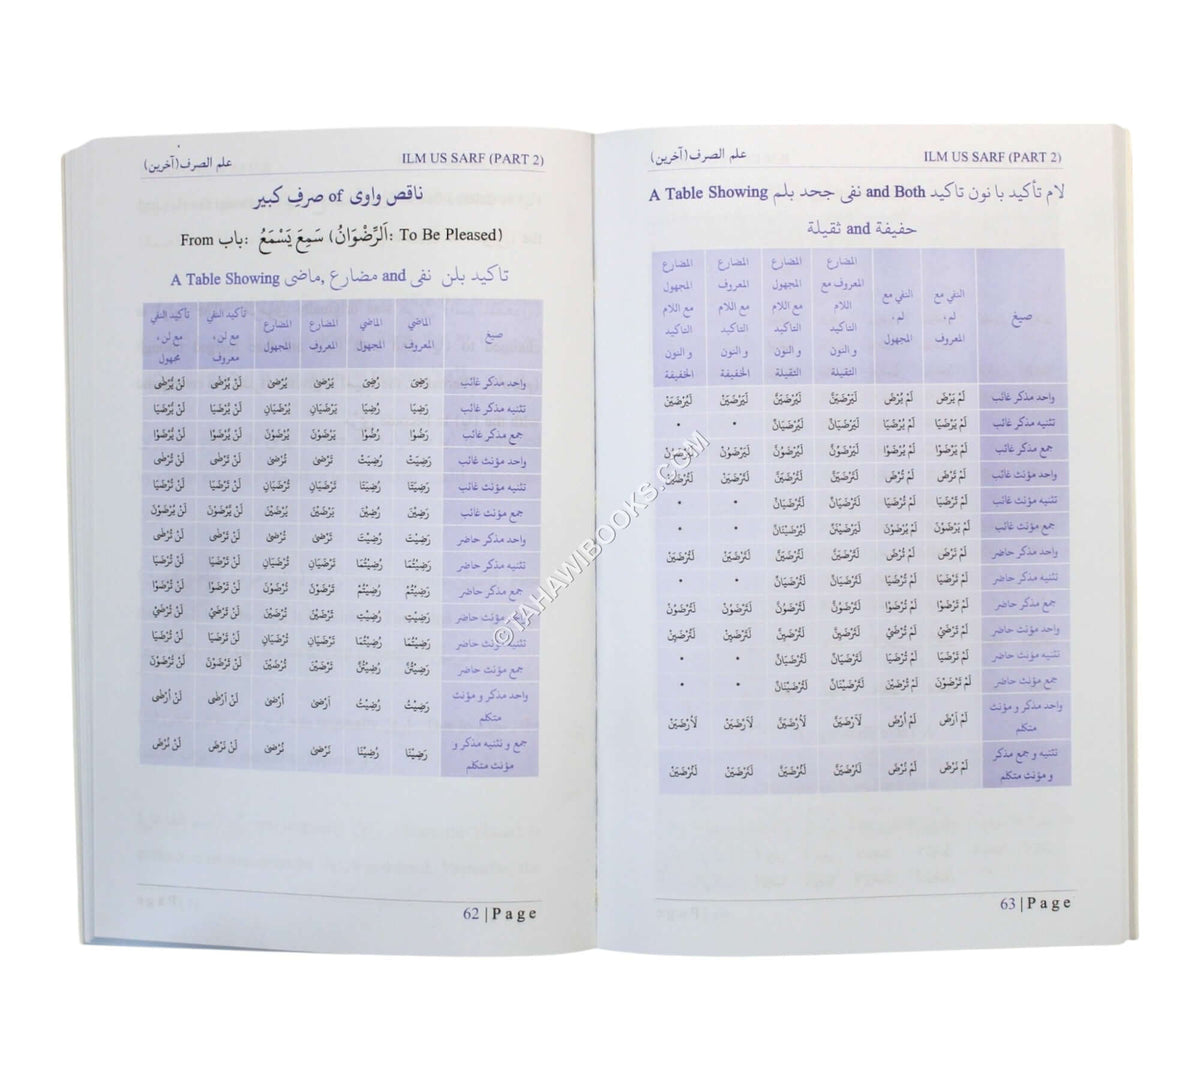 علم الصرف(آخرين) ILM US SARF (PART 2)
ناقص واوی of صرفِ کبیر
From باب: سَمِعَ يَسْمَعُ (اَلرِّضْوَانُ: To Be Pleased)
A Table Showing ماضی, مضارع and تاکید بلن نفی
صيغ الماضي المعروف الماضي المجهول المضارع المعروف المضارع المجهول تأكيد النفي مع لن، معروف تأكيد النفي مع لن، مجهول
واحد مذكر غائب رَضِىَ رُضِىَ يَرْضىٰ يُرْضىٰ لَنْ يَّرْضٰى لَنْ يُّرْضٰى
تثنيه مذكر غائب رَضِيَا رُضِيَا يَرْضَيَانِ يُرْضَيَانِ لَنْ يَّرْضَيَا لَنْ يُّرْضَيَا
جمع مذكر غائب رَضُوْا رُضُوْا يَرْضَوْنَ يُرْضَوْنَ لَنْ يَّرْضَوْا لَنْ يُّرْضَوْا
واحد مؤنث غائب رَضِيَتْ رُضِيَتْ تَرْضىٰ تُرْضىٰ لَنْ تَرْضٰى لَنْ تُرْضٰى
تثنيه مؤنث غائب رَضِيَتَا رُضِيَتَا تَرْضَيَانِ تُرْضَيَانِ لَنْ تَرْضَيَا لَنْ تُرْضَيَا
جمع مؤنث غائب رَضِيْنَ رُضِيْنَ يَرْضَيْنَ يُرْضَيْنَ لَنْ يَّرْضَوْنَ لَنْ يُّرْضَوْنَ
واحد مذكر حاضر رَضِيْتَ رُضِيْتَ تَرْضىٰ تُرْضىٰ لَنْ تَرْضٰى لَنْ تُرْضٰى
تثنيه مذكر حاضر رَضِيْتُمَا رُضِيْتُمَا تَرْضَيَانِ تُرْضَيَانِ لَنْ تَرْضَيَا لَنْ تُرْضَيَا
جمع مذكر حاضر رَضِيْتُمْ رُضِيْتُمْ تَرْضَوْنَ تُرْضَوْنَ لَنْ تَرْضَوْا لَنْ تُرْضَوْا
واحد مؤنث حاضر رَضِيْتِ رُضِيْتِ تَرْضَيْنَ تُرْضَيْنَ لَنْ تَرْضَيْ لَنْ تُرْضَيْ
تثنيه مؤنث حاضر رَضِيْتُمَا رُضِيْتُمَا تَرْضَيَانِ تُرْضَيَانِ لَنْ تَرْضَيَا لَنْ تُرْضَيَا
جمع مؤنث حاضر رَضِيْتُنَّ رُضِيْتُنَّ تَرْضَيْنَ تُرْضَيْنَ لَنْ تَرْضَوْنَ لَنْ تُرْضَوْنَ
واحد مذكر و مؤنث متكلم رَضِيْتُ رُضِيْتُ اَرْضىٰ اُرْضىٰ لَنْ اَرْضٰى لَنْ اُرْضٰى
جمع و تثنيه مذكر و مؤنث متكلم رَضِيْنَا رُضِيْنَا نَرْضىٰ نُرْضىٰ لَنْ نَرْضَ لَنْ نُرْضَ
62 | Page
علم الصرف(آخرين) ILM US SARF (PART 2)
A Table Showing نفی جحد بلم and Both لام تأکید با نون تاکید
حفيفة and ثقيلة
صيغ النفي مع لم، المعروف النفي مع لم، المجهول المضارع المعروف مع اللام التاكيد و النون الثقيلة المضارع المجهول مع اللام التاكيد و النون الثقيلة المضارع المعروف مع اللام التاكيد و النون الخفيفة المضارع المجهول مع اللام التاكيد و النون الخفيفة
واحد مذكر غائب لَمْ يَرْضَ لَمْ يُرْضَ لَيَرْضَيَنَّ لَيُرْضَيَنَّ لَيَرْضَيَنْ لَيُرْضَيَنْ
تثنيه مذكر غائب لَمْ يَرْضَيَا لَمْ يُرْضَيَا لَيَرْضَيَانِّ لَيُرْضَيَانِّ • •
جمع مذكر غائب لَمْ يَرْضَوْا لَمْ يُرْضَوْا لَيَرْضَوُنَّ لَيُرْضَوُنَّ لَيَرْضَوُنْ لَيُرْضَوُنْ
واحد مؤنث غائب لَمْ تَرْضَ لَمْ تُرْضَ لَتَرْضَيَنَّ لَتُرْضَيَنَّ لَتَرْضَيَنْ لَتُرْضَيَنْ
تثنيه مؤنث غائب لَمْ تَرْضَيَا لَمْ تُرْضَيَا لَتَرْضَيَانِّ لَتُرْضَيَانِّ • •
جمع مؤنث غائب لَمْ يَرْضَوْنَ لَمْ يُرْضَوْنَ لَيَرْضَيْنَانِّ لَيُرْضَيْنَانِّ • •
واحد مذكر حاضر لَمْ تَرْضَ لَمْ تُرْضَ لَتَرْضَيَنَّ لَتُرْضَيَنَّ لَتَرْضَيَنْ لَتُرْضَيَنْ
تثنيه مذكر حاضر لَمْ تَرْضَيَا لَمْ تُرْضَيَا لَتَرْضَيَانِّ لَتُرْضَيَانِّ • •
جمع مذكر حاضر لَمْ تَرْضَوْا لَمْ تُرْضَوْا لَتَرْضَوُنَّ لَتُرْضَوُنَّ لَتَرْضَوُنْ لَتُرْضَوُنْ
واحد مؤنث حاضر لَمْ تَرْضَيْ لَمْ تُرْضَيْ لَتَرْضَيِنَّ لَتُرْضَيِنَّ لَتَرْضَيِنْ لَتُرْضَيِنْ
تثنيه مؤنث حاضر لَمْ تَرْضَيَا لَمْ تُرْضَيَا لَتَرْضَيَانِّ لَتُرْضَيَانِّ • •
جمع مؤنث حاضر لَمْ تَرْضَوْنَ لَمْ تُرْضَيْنَ لَتَرْضَيْنَانِّ لَتُرْضَيْنَانِّ • •
واحد مذكر و مؤنث متكلم لَمْ اَرْضَ لَمْ اُرْضَ لَاَرْضَيَنَّ لَاُرْضَيَنَّ لَاَرْضَيَنْ لَاُرْضَيَنْ
تثنيه و جمع مذكر و مؤنث متكلم لَمْ نَرْضَ لَمْ نُرْضَ لَنَرْضَيَنَّ لَنُرْضَيَنَّ لَنَرْضَيَنْ لَنُرْضَيَنْ
63 | Page
©TAHAWIBOOKS.COM